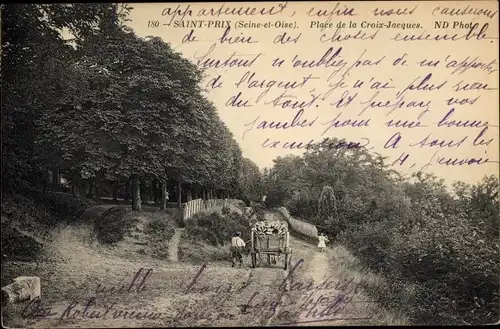 appartement enfin nous causerons
180 - SAINT-PRIX (Seine-et-Oise). Place de la Croix-Jacques. ND Phot.
de bien des choses ensemble
Surtout n'oublie pas de m'apporter
de l'argent, je n'ai plus rien
du tout. Et prépare vos
jambes pour une bonne
excursion. A tous les
4, j'envoie
mille bons baisers
Robert